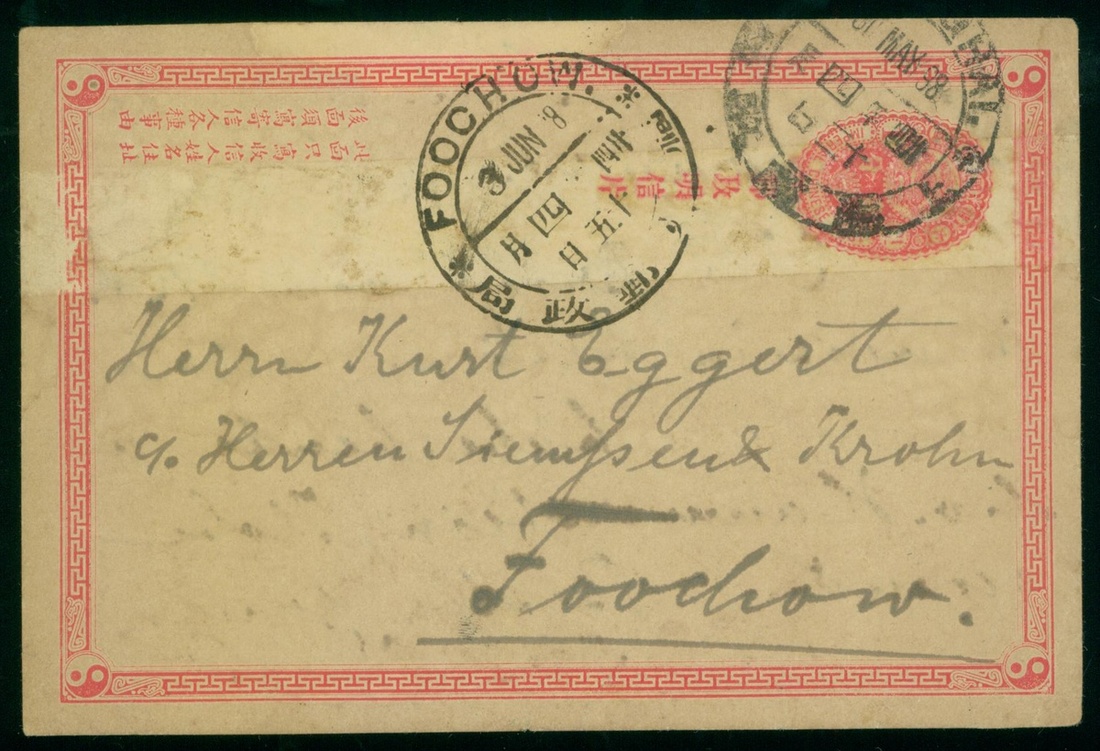 後面須寫寄信人各種事由
此面只寫收信人姓名住址
政
信
片
FOOCHOW.
3 JUN 8
四
月
五
日
政
局
MAY 98
四
月
Herrn Kurt Eggert
c/o Herren Siemssen & Krohn
Foochow.